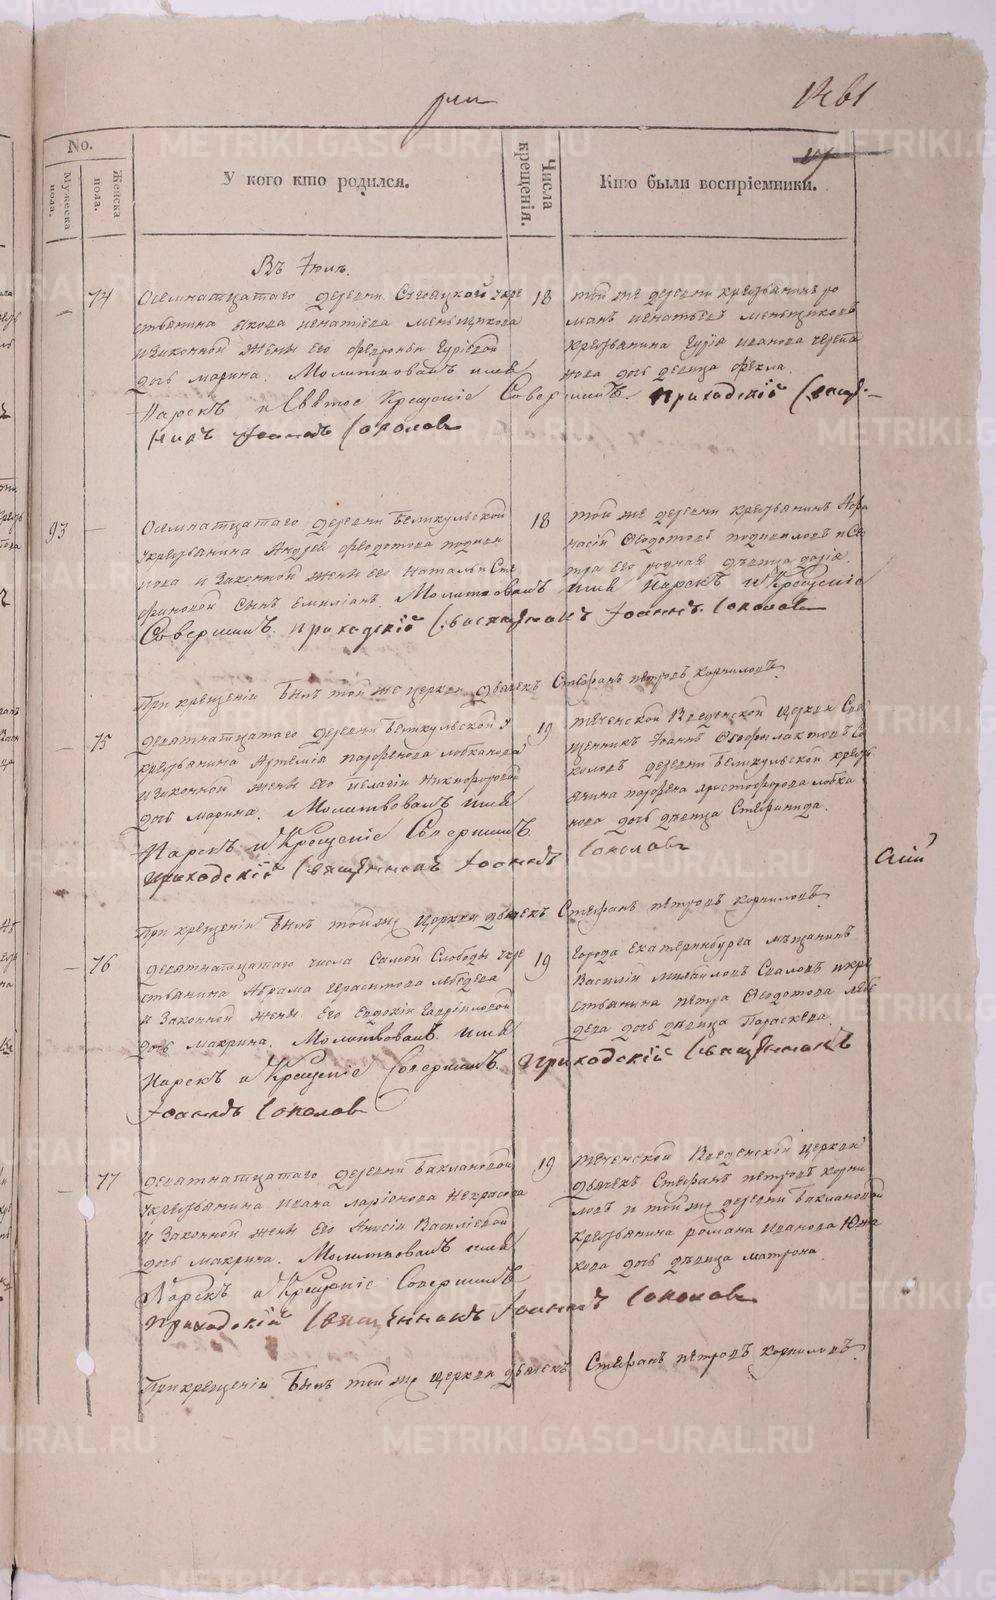 1461
No.
Мужеска пола.
Женска пола.
У кого кто родился.
Числа крещенія.
Кто были воспріемники.
Въ Іюлѣ.
74
Осемнатцатаго деревни укре
стьянина игнатіева меньщикова
изаконной жены его февроньи гуріевой
дочь марина. Молитвовалъ имя
Нарекъ и Святое Крещеніе Совершилъ. приходскій Свящ-
никъ Іоаннъ Соколовъ
18
той же деревни крестьянинъ ро
манъ игнатьевъ меньщиковъ
крестьянина гурія иванова черепа
нова дочь девица фекла.
93
Осемнатцатаго деревни Беликульской
укрестьянина Андрея федотова
и Законной жены его Натальи Сте
фановой сынъ емиліанъ. Молитвовалъ имя Нарекъ и Крещеніе
Совершилъ приходскій Священникъ Іоаннъ Соколовъ
18
той же деревни крестьянинъ Афа
насій Федотовъ и Се
тра его родная дѣвица дарія.
При крещеніи былъ той же церкви дьячекъ Стефанъ петровъ корниловъ.
75
девятнатцатаго деревни Беликульской у
крестьянина Артемія парфенова лобканова
изаконной жены его пелагіи никифоровой
дочь марина. Молитвовалъ имя
Нарекъ и Крещеніе Совершилъ
приходскій Священникъ Іоаннъ Соколовъ
19
теченской Введенской церкви Свя
щенникъ Іоаннъ Феофилактовъ Со
коловъ деревни беликульской кресть
янина парфена христофорова лобка
нова дочь дѣвица Стефанида.
При крещеніи былъ тойже церкви дьячекъ Стефанъ петровъ корниловъ.
76
девятнатцатаго числа Самой Слободы укре
стьянина Аврама герасимова лебедева
и Законной жены его Евдокіи гавриловой
дочь макрина. Молитвовалъ имя
Нарекъ и Крещеніе Совершилъ. приходскій Священникъ
Іоаннъ Соколовъ
19
города екатеринбурга мѣщанинъ
Василій михайловъ икре
стьянина петра Федотова лебе
дева дочь дѣвица Параскева.
77
девятнатцатаго деревни баклановой
укрестьянина ивана ларіонова некрасова
и Законной жены его Анисіи Василіевой
дочь макрина. Молитвовалъ имя
Нарекъ и Крещеніе Совершилъ
приходскій Священникъ Іоаннъ Соколовъ
19
теченской Введенской церкви
дьячекъ Стефанъ петровъ корни
ловъ и тойже деревни баклановой
крестьянина романа иванова
кова дочь дѣвица матрона.
При крещеніи былъ той же церкви дьячекъ Стефанъ петровъ корниловъ.
METRIKI.GASO-URAL.RU